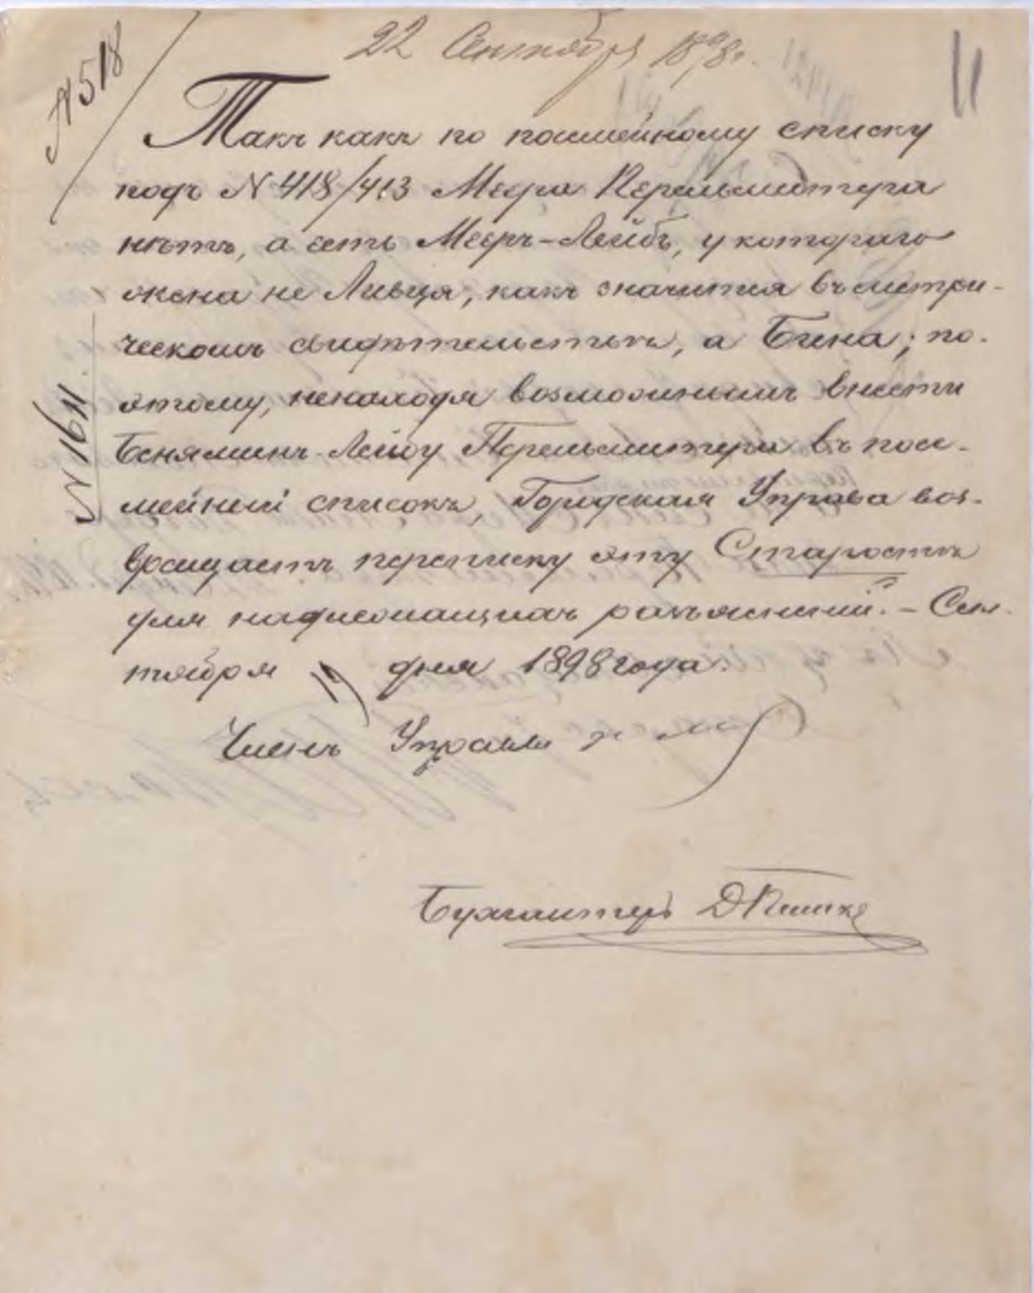 22 Сентября 1898г.
11
N 518
Такъ какъ по посемейному списку
подъ N 418/413 Меера Перельмитера
нѣтъ, а есть Мееръ-Лейбъ, у котораго
жена не Ливця, какъ значится въ метри-
ческомъ свидѣтельствѣ, а Бина; по-
этому, ненаходя возможнымъ внести
Беняминъ-Лейбу Перельмитера въ посе-
N 1611.
мейный списокъ, Городская Управа воз-
вращаетъ переписку эту Старостѣ
для надлежащихъ разъясненій. – Сен-
тября 19 дня 1898 года.
Членъ Управы
Бухгалтеръ